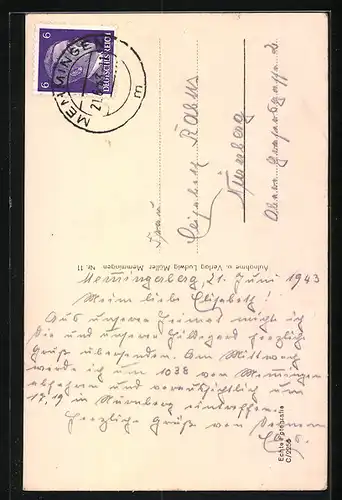 MEMMINGEN
21.6.43
E
6 DEUTSCHES REICH 6
Frau
Elisabeth Rabus
Nürnberg
Obere
Aufnahme u. Verlag Ludwig Müller Memmingen Nr. 11
Echte Fotografie
C/2256
Memmingerberg, 21. Juni 1943
Meine liebe Elisabeth!
Aus unserer Heimat möcht ich
Dir und unserer Hildegard herzliche
Grüße übersenden. Am Mittwoch
werde ich um 1038 von Memmingen
abfahren und voraussichtlich um
1719 in Nürnberg eintreffen.
Herzliche Grüße von Deinem